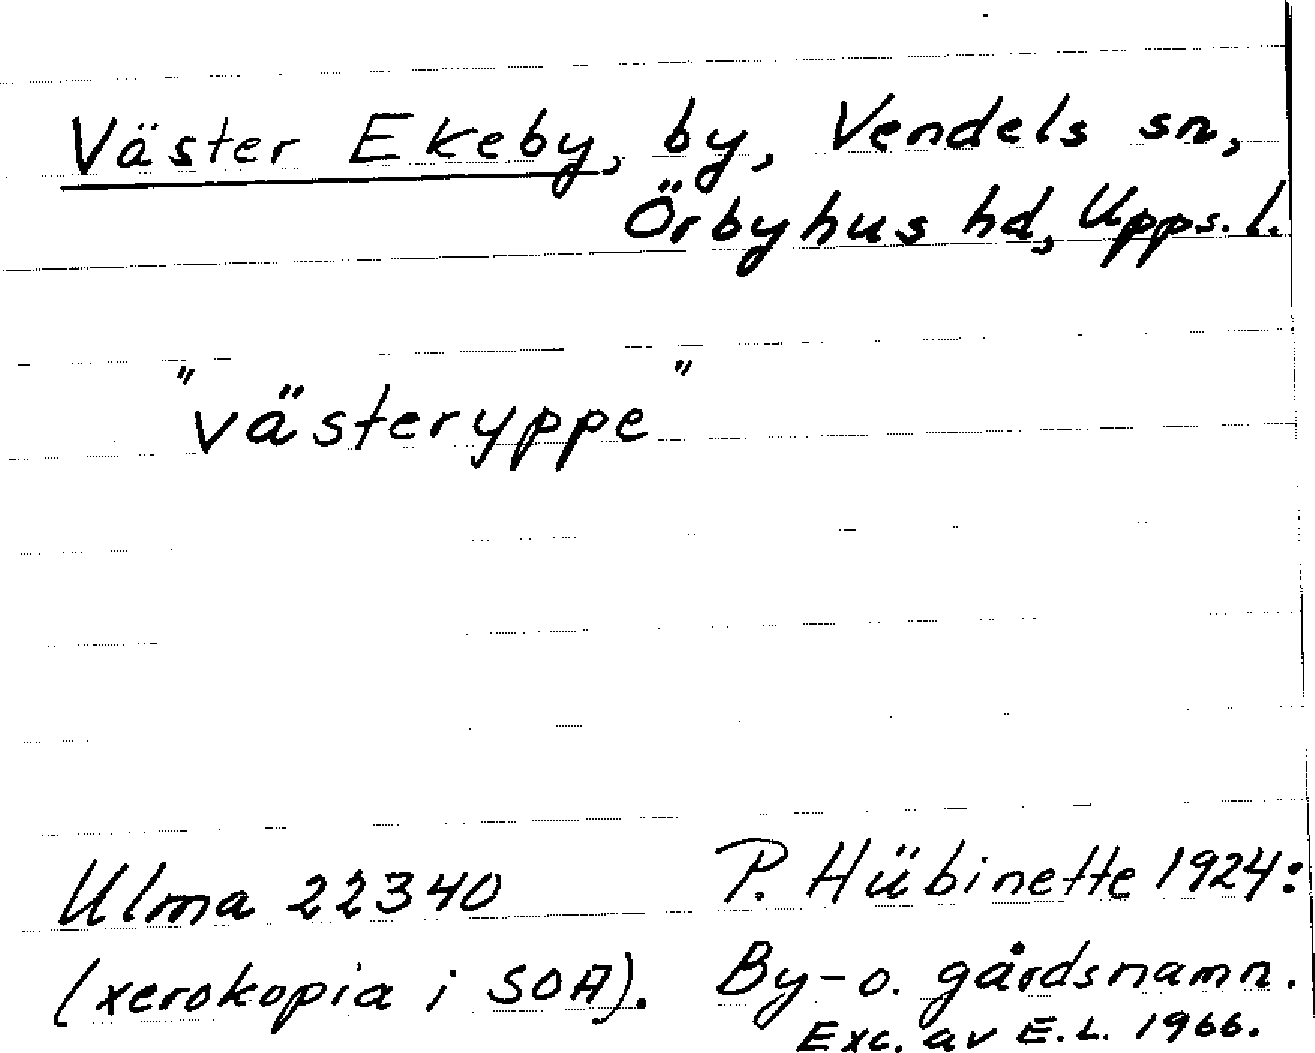 Väster Ekeby, by, Vendels sn,
Örbyhus hd, Upps. l.
"västeryppe"
Ulma 22340
(xerokopia i SOA).
P. Hübinette 1924:
By- o. gårdsnamn.
Exc. av E.L. 1966.